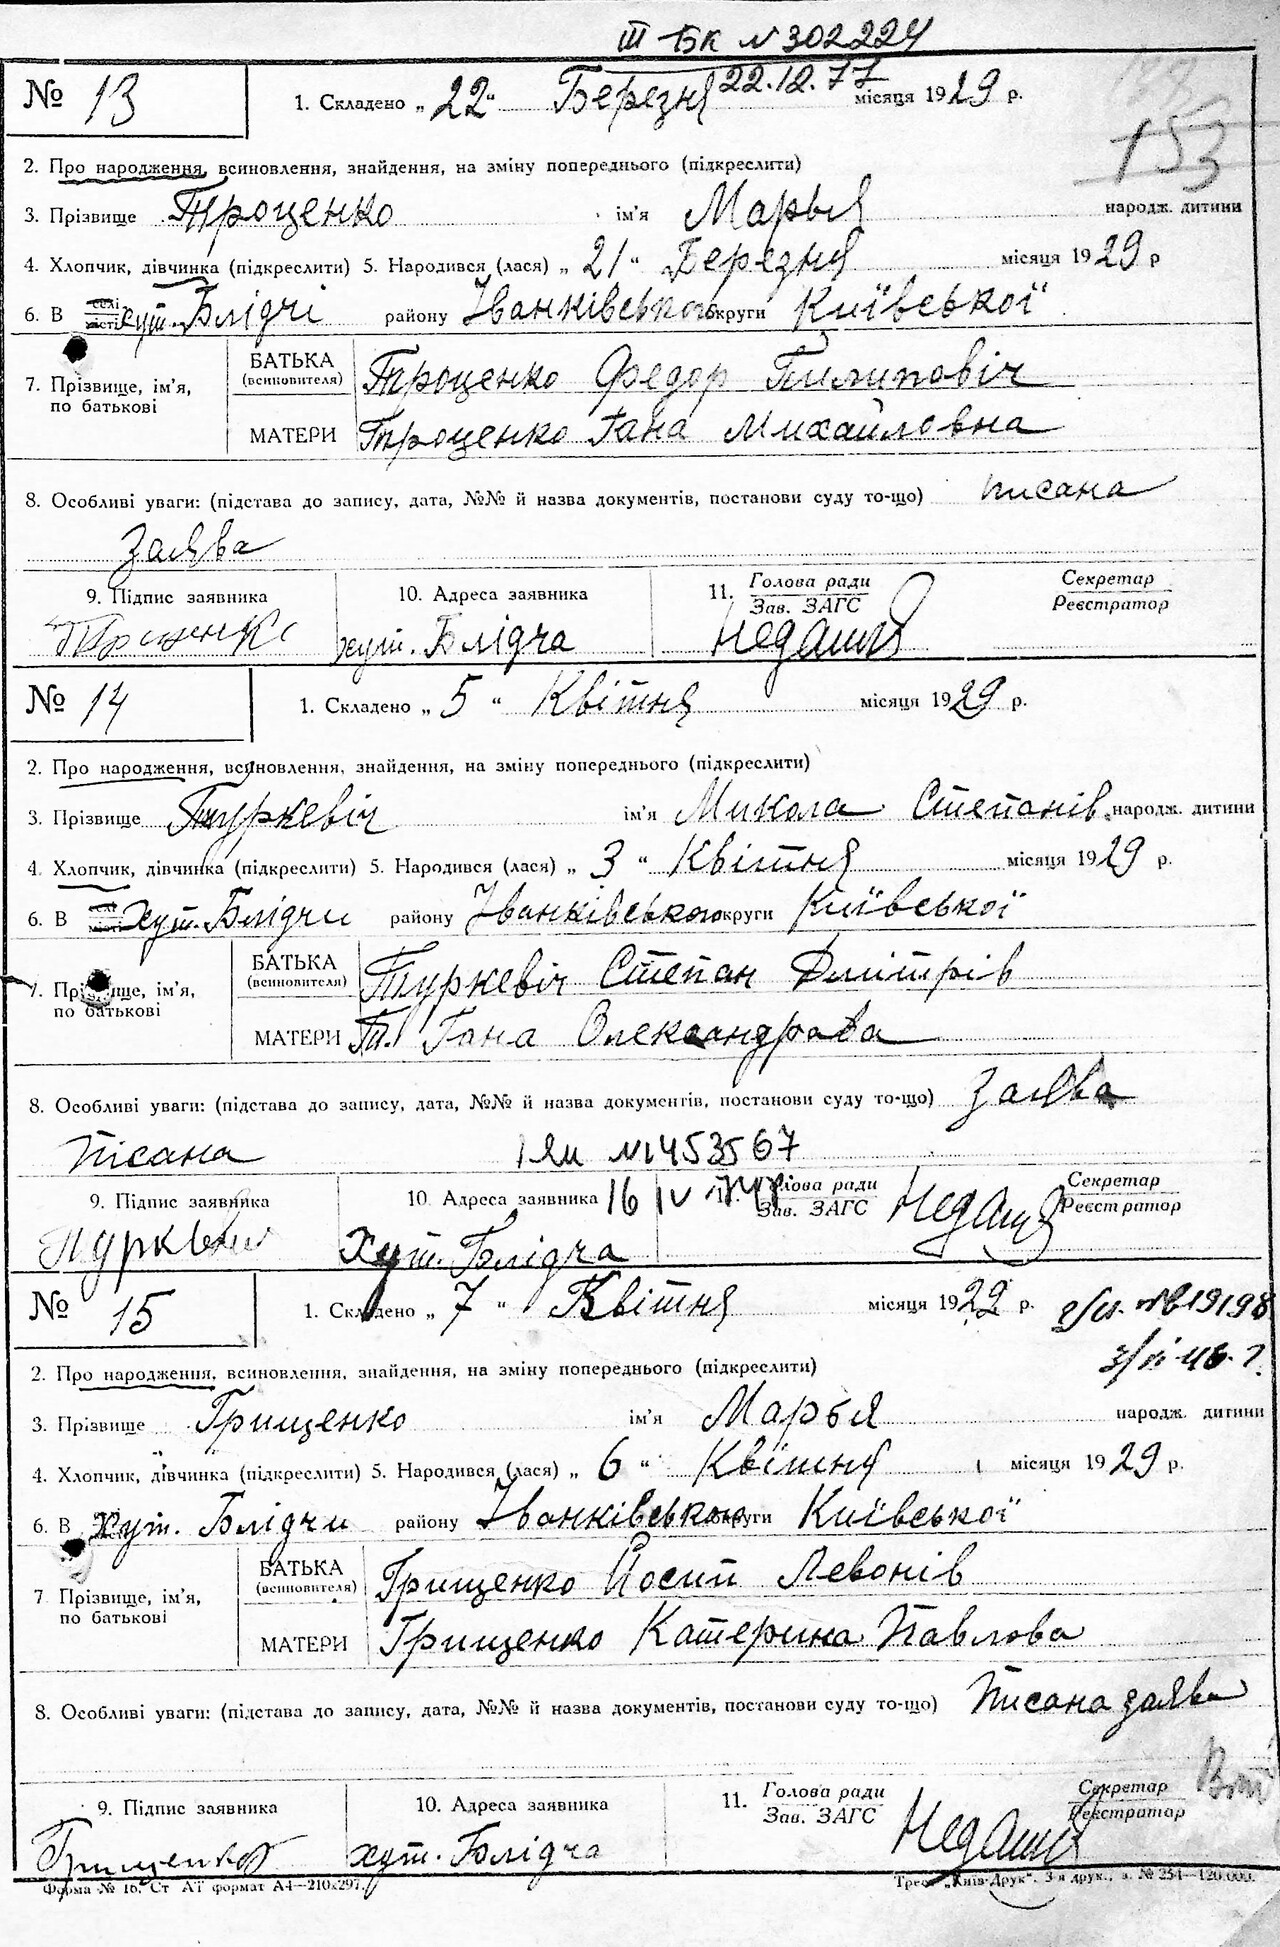 III БК N 302224
22.12.77
№ 13 1. Складено „22" Березня місяця 1929 р.
153
2. Про народження, всиновлення, знайдення, на зміну попереднього (підкреслити)
3. Прізвище Троценко ім'я Марья народж. дитини
4. Хлопчик, дівчинка (підкреслити) 5. Народився (лася) „21" Березня місяця 1929 р
6. В селі місті хут. Блідчі району Іванківського округи Київської
7. Прізвище, ім'я, по батькові
БАТЬКА (всиновителя) Троценко Федор Пилиповіч
МАТЕРИ Троценко Гана Михайловна
8. Особливі уваги: (підстава до запису, дата, №№ й назва документів, постанови суду то-що) писана
заява
9. Підпис заявника 10. Адреса заявника 11. Голова ради Зав. ЗАГС Секретар Реєстратор
Троценко хут. Блідча
№ 14 1. Складено „5" Квітня місяця 1929 р.
2. Про народження, всиновлення, знайдення, на зміну попереднього (підкреслити)
3. Прізвище Туркевіч ім'я Микола Степанів народж. дитини
4. Хлопчик, дівчинка (підкреслити) 5. Народився (лася) „3" Квітня місяця 1929 р.
6. В селі місті хут. Блідчи району Іванківського округи Київської
7. Прізвище, ім'я, по батькові
БАТЬКА (всиновителя) Туркевіч Степан Дмітрів
МАТЕРИ Т. Гана Олександрова
8. Особливі уваги: (підстава до запису, дата, №№ й назва документів, постанови суду то-що) Заява
пісана N 1453567
9. Підпис заявника 10. Адреса заявника 16 IV Голова ради Зав. ЗАГС Секретар Реєстратор
хут. Блідча
№ 15 1. Складено „7" Квітня місяця 1929 р.
2. Про народження, всиновлення, знайдення, на зміну попереднього (підкреслити)
3. Прізвище Грищенко ім'я Марья народж. дитини
4. Хлопчик, дівчинка (підкреслити) 5. Народився (лася) „6" Квітня місяця 1929 р.
6. В хут. Блідчи району Іванківського округи Київської
7 Прізвище, ім'я, по батькові
БАТЬКА (всиновителя) Грищенко Йосип Левонів
МАТЕРИ Грищенко Катерина Павлова
8. Особливі уваги: (підстава до запису, дата, №№ й назва документів, постанови суду то-що) Писана заява
9. Підпис заявника 10. Адреса заявника 11. Голова ради Зав. ЗАГС Секретар Реєстратор
Грищенко хут. Блідча
Форма № 16. Ст АЇ формат А4—210х297. Трест „Київ-Друк". 3-я друк., з. № 254—120.000.